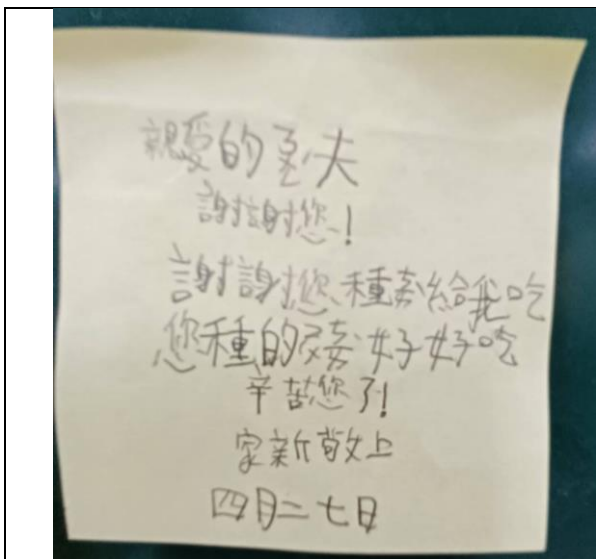 親愛的 夫
謝謝您!
謝謝您種 給我吃
您種的 好好吃
辛苦您了!
家新敬上
四月二七日